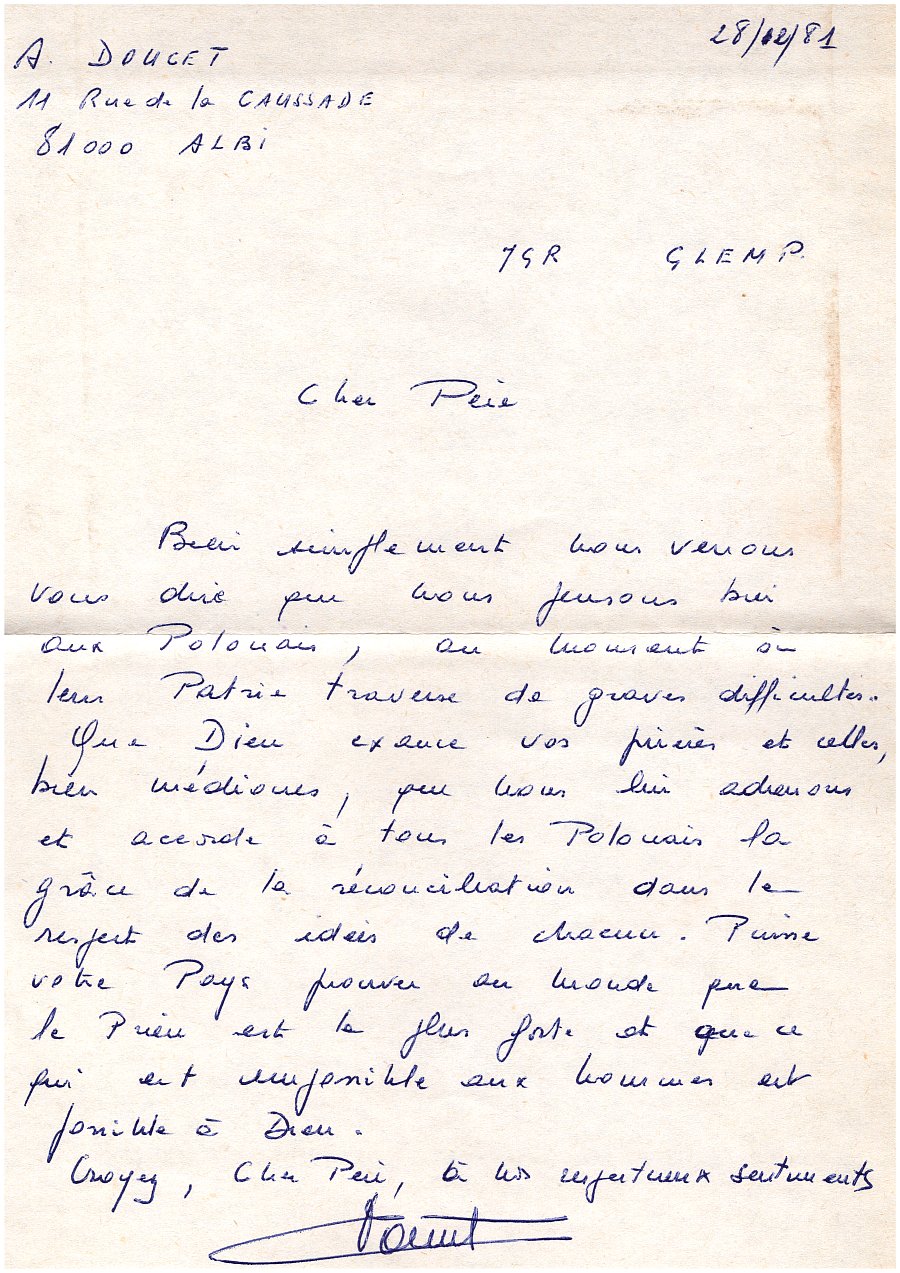 28/12/81
A. DOUCET
11 Rue de la CAUSSADE
81000 ALBi
MGR GLEMP.
Cher Père
Bien simplement nous venons
vous dire que nous pensons bien
aux Polonais, au moment où
leur Patrie traverse de graves difficultés.
Que Dieu exauce vos prières et celles,
bien médiocres, que nous lui adressons
et accorde à tous les Polonais la
grâce de la réconciliation dans le
respect des idées de chacun. Puisse
votre Pays prouver au monde que
la Prière est la plus forte et que ce
qui est impossible aux hommes est
possible à Dieu.
Croyez, Cher Père, à nos respectueux sentiments
Doucet